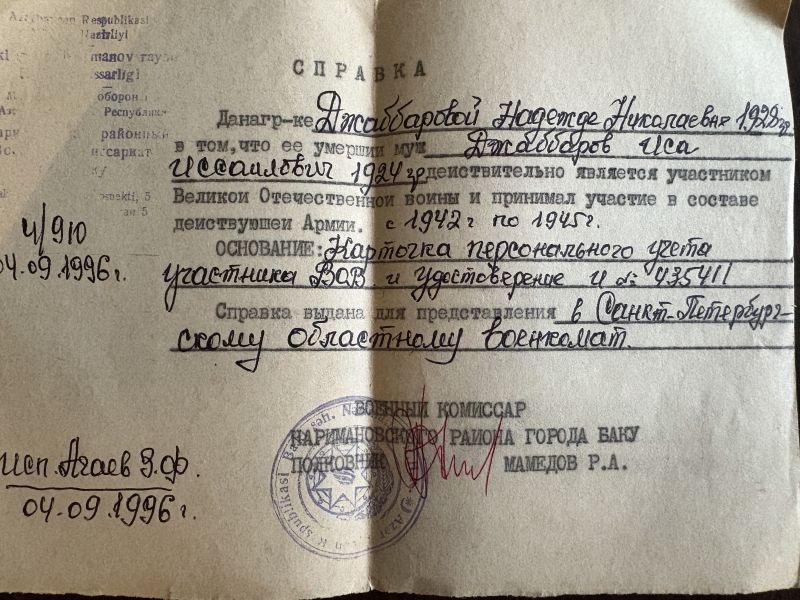 Respublikası
Nazirliyi
rayo
оборони
Республики
районный
ssarlığı
4/910
04.09.1996г.
СПРАВКА
Дана гр-ке Джаббаровой Надежде Николаевне 1928гр
в том,что ее умерший муж Джаббаров Иса
Иссаилович 1924гр действительно является участником
Великои Отечественнои воины и принимал участие в составе
деиствуюшеи Армии. с 1942г по 1945г.
ОСНОВАНИЕ: Карточка персонального учета
участника ВОВ и удостоверение И № 435411
Справка выдана для представления в Санкт-Петербург-
скому областному военкомат.
ВОЕННЫЙ КОМИССАР
НАРИМАНОВСКОГО РАЙОНА ГОРОДА БАКУ
ПОЛКОВНИК МАМЕДОВ Р.А.
Исп. Агаев З.Ф.
04.09.1996г.